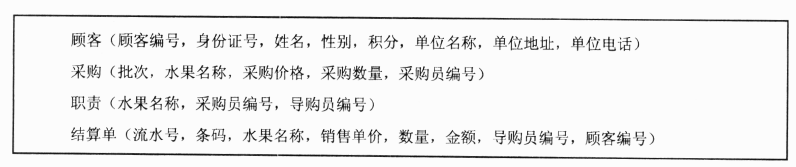 顾客（顾客编号，身份证号，姓名，性别，积分，单位名称，单位地址，单位电话）
采购（批次，水果名称，采购价格，采购数量，采购员编号）
职责（水果名称，采购员编号，导购员编号）
结算单（流水号，条码，水果名称，销售单价，数量，金额，导购员编号，顾客编号）